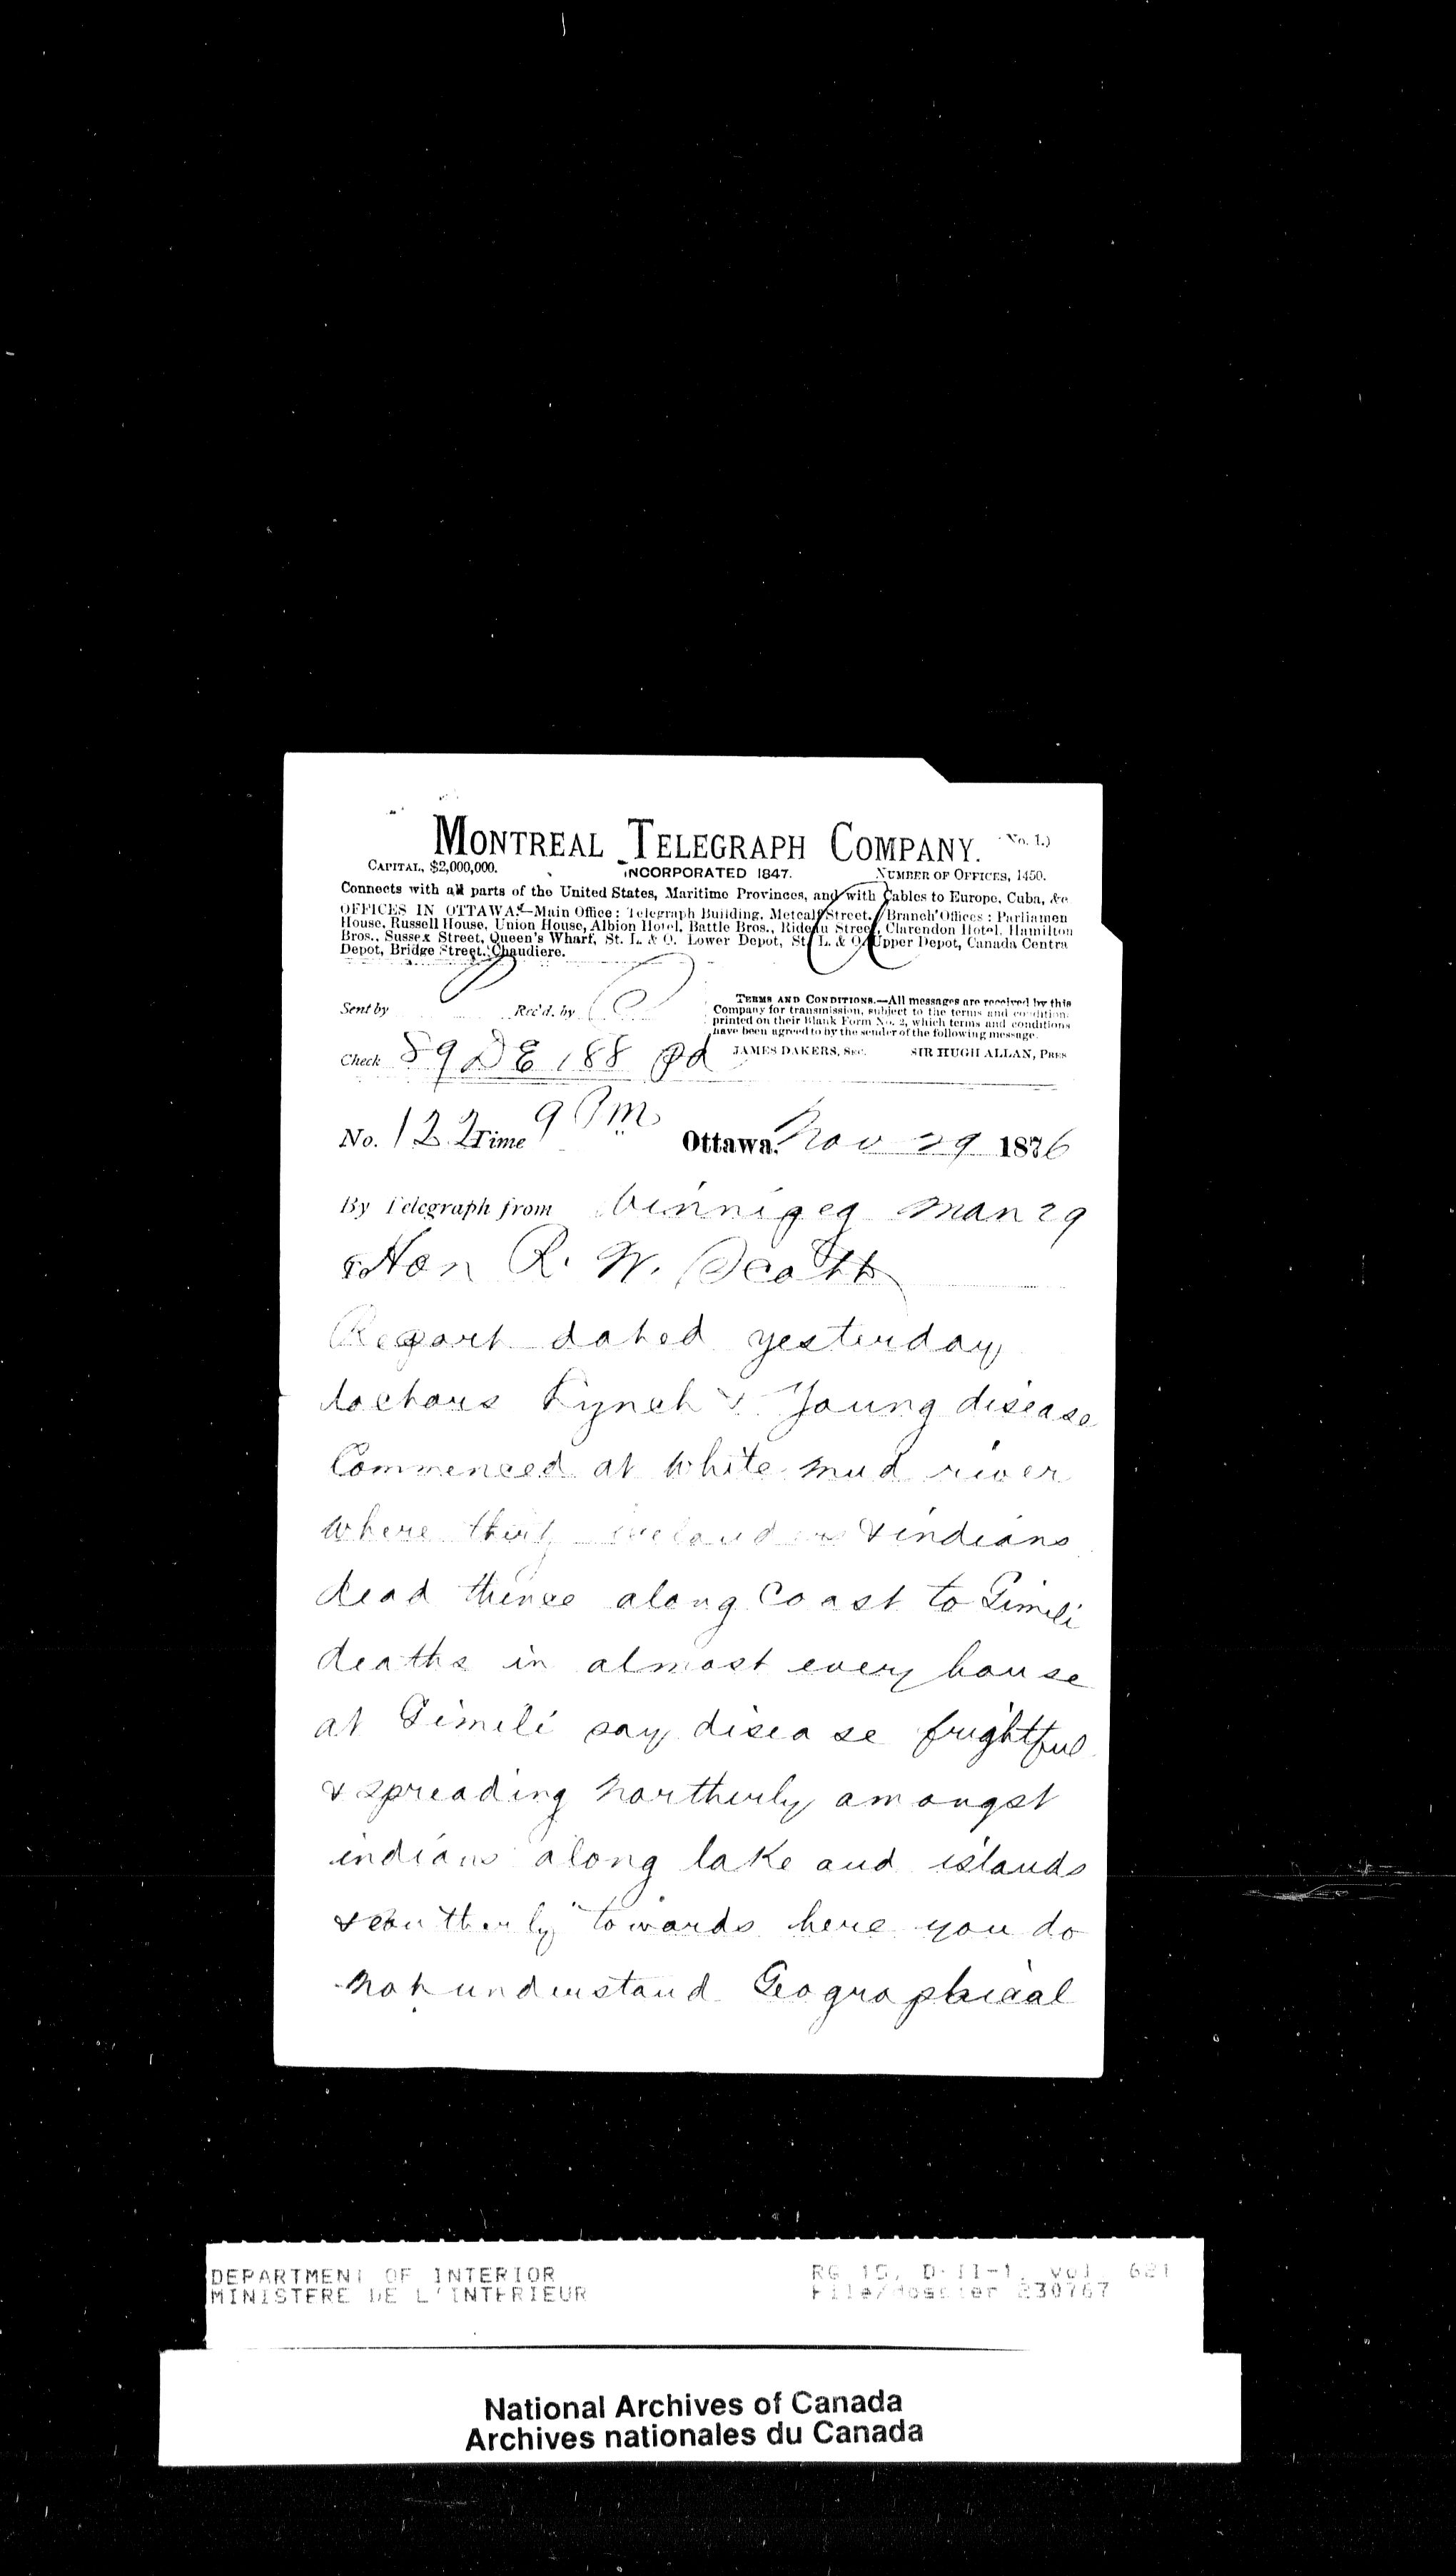 MONTREAL TELEGRAPH COMPANY. (No. 1.)
CAPITAL, $2,000,000. INCORPORATED 1847. NUMBER OF OFFICES, 1450.
Connects with all parts of the United States, Maritime Provinces, and with Cables to Europe, Cuba, &c
OFFICES IN OTTAWA:—Main Office: Telegraph Building, Metcalf Street. Branch Offices: Parliamen
House, Russell House, Union House, Albion Hotel, Battle Bros., Rideau Street, Clarendon Hotel, Hamilton
Bros., Sussex Street, Queen's Wharf, St. L. & O. Lower Depot, St. L. & O. Upper Depot, Canada Centra
Depot, Bridge Street, Chaudiere.
Sent by Rec'd. by
TERMS AND CONDITIONS.—All messages are received by this
Company for transmission, subject to the terms and condition
printed on their Blank Form No. 2, which terms and conditions
have been agreed to by the sender of the following message.
JAMES DAKERS, SEC. SIR HUGH ALLAN, PRES
Check 89 DE 188 Pd
No. 122 Time 9 Pm Ottawa, Nov 29 1876
By Telegraph from Winnipeg Man 29
To Hon R. W. Scott
Report dated yesterday
doctors Lynch & Young disease
Commenced at White mud river
where thirty icelanders & indians
dead thence along Coast to Gimli
deaths in almost every house
at Gimili say disease frightful
& spreading northerly amongst
indians along lake and islands
& southerly towards here you do
not understand Geographical
DEPARTMENT OF INTERIOR RG 15, D-II-1, vol. 621
MINISTERE DE L'INTERIEUR File/dossier 230767
National Archives of Canada
Archives nationales du Canada